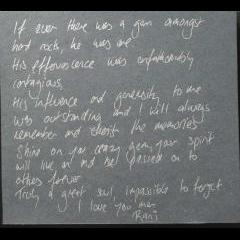 If ever there was a gem amongst
hard rock, he was one
His effervescence was
contagious,
His influence and generosity to me
was outstanding and I will always
remember and cherish the memories
Shine on you crazy gem, your spirit
will live on and be passed on to
others forever
Truly a great soul, impossible to forget
I love you man